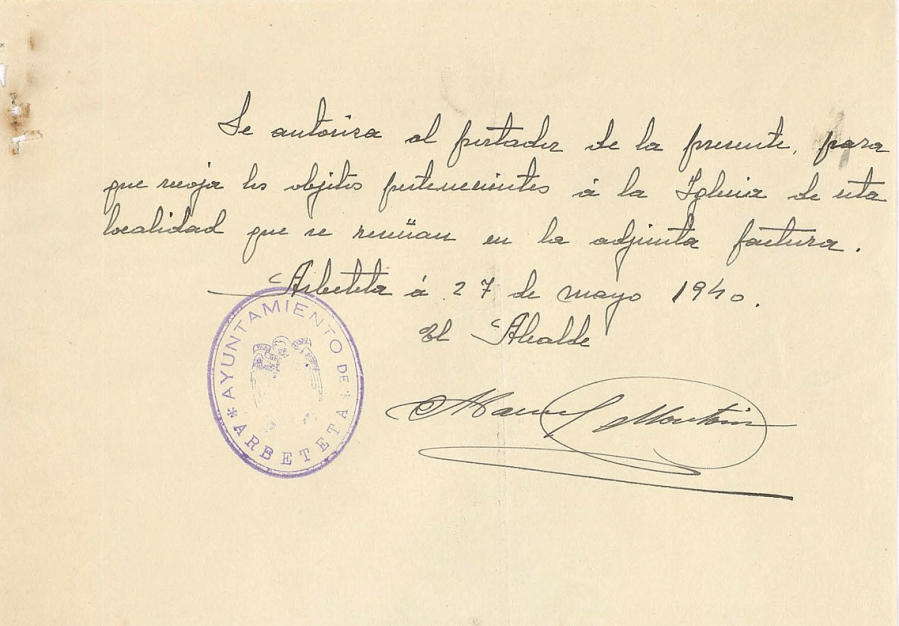 Se autoriza al portador de la presente, para
que recoja los objetos pertenecientes á la Iglesia de esta
localidad que se reseñan en la adjunta factura.
Arbeteta á 27 de mayo 1940.
El Alcalde
Manuel Martin
* AYUNTAMIENTO DE * ARBETETA